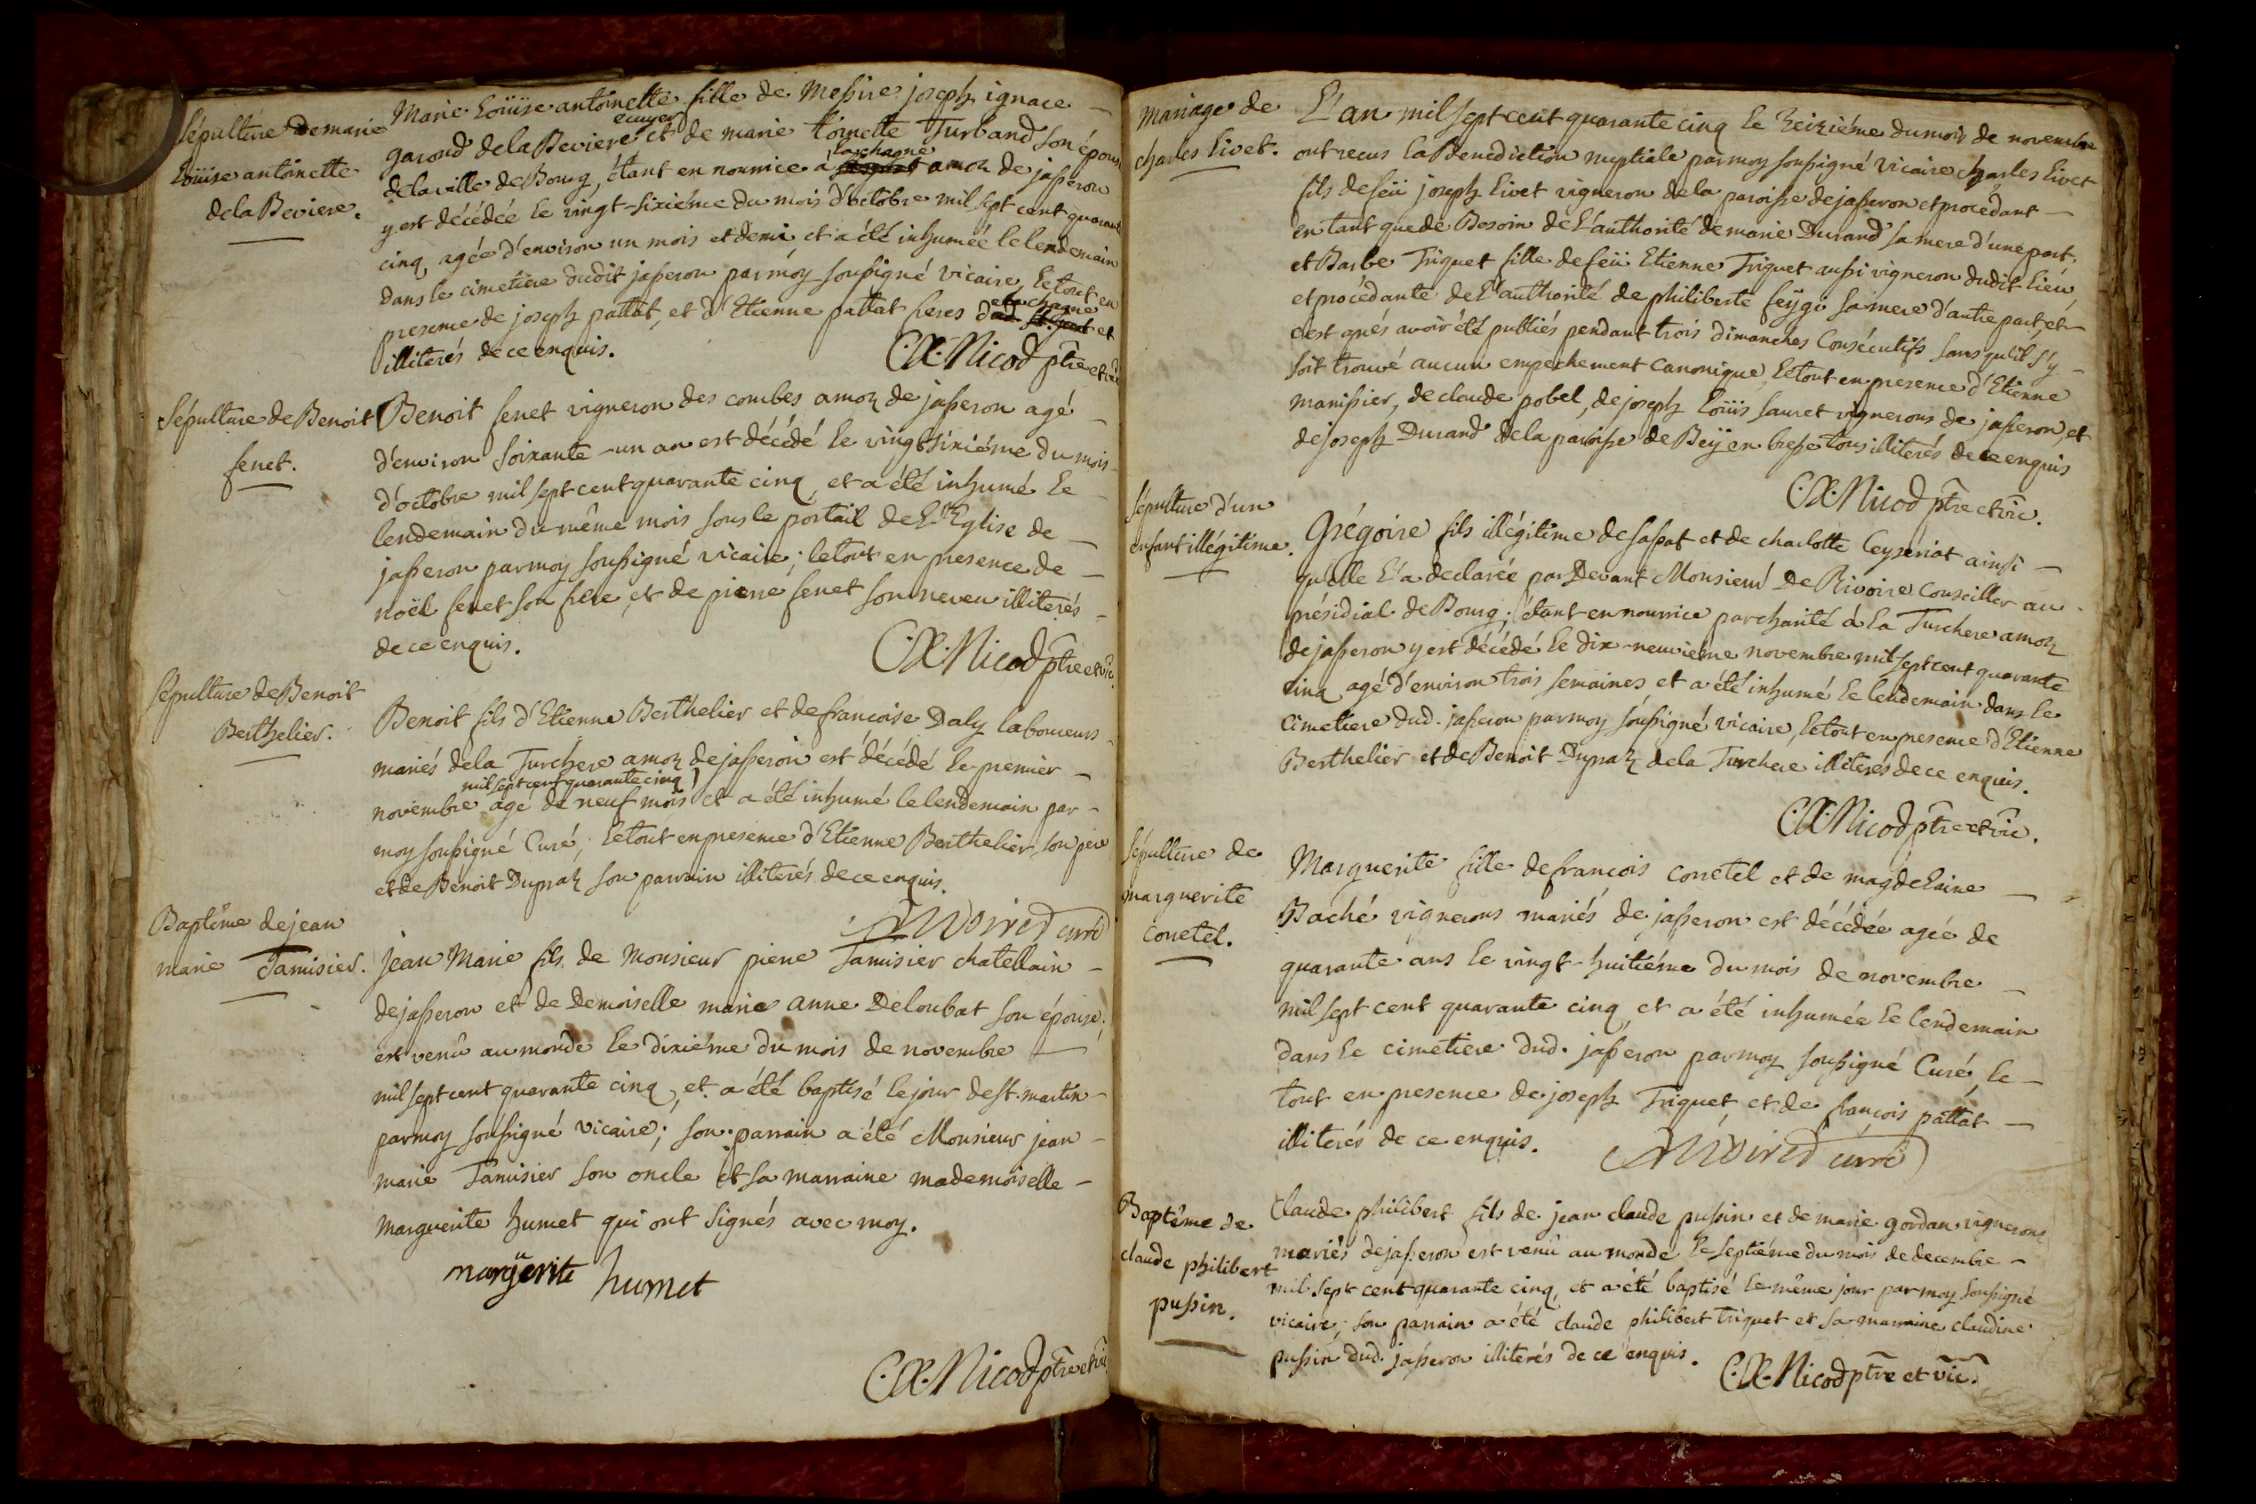 Sépulture de marie
Loüise antoinette
de la Beviere.
Marie Loüise antoinette fille de Messire joseph ignace
garond de la Beviere ecuyer et de marie toinette Turband son épouse
de la ville de Bourg, étant en nourrice à lachagne amon de jasseron
y est décédée le vingt-sixiéme du mois d'octobre mil sept cent quarante
cinq, agée d'environ un mois et demi et a été inhumée le lendemain
dans le cimetiere dudit jasseron par moy soussigné vicaire, le tout en
presence de joseph pattat, et d'Etienne pattat freres de la chagne et
illiterés de ce enquis.
C.X. Nicod ptre et vic.
Sépulture de Benoit
fenet.
Benoit fenet vigneron des combes amon de jasseron agé
d'environ soixante-un an est décédé le vingt sixiéme du mois
d'octobre mil sept cent quarante cinq, et a été inhumé le
lendemain du même mois sous le portail de L'Eglise de
jasseron par moy soussigné vicaire; le tout en presence de
noël fenet son frere, et de pierre fenet son neveu illiterés
de ce enquis.
C.X. Nicod ptre et vic.
Sépulture de Benoit
Berthelier.
Benoit fils d'Etienne Berthelier et de francoise Daly laboureurs
mariés de la Turchere amon de jasseron est décédé le premier
mil sept cent quarante cinq
novembre agé de neuf mois et a été inhumé le lendemain par
moy soussigné Curé, le tout en presence d'Etienne Berthelier son pere
et de Benoit Dupraz son parrain illiterés de ce enquis.
curé
Baptême de jean
marie Tamisier.
jean Marie fils de Monsieur pierre Tamisier chatellain
de jasseron et de Demoiselle marie anne Deloubat son épouse
est venû au monde le dixiéme du mois de novembre
mil sept cent quarante cinq, et a été baptisé le jour de st. martin
par moy soussigné vicaire; son parrain a été Monsieur jean
marie Tamisier son oncle et sa marraine mademoiselle
marguerite humet qui ont signés avec moy.
margùerite humet
C.X. Nicod ptre et vic.
Mariage de
charles livet.
L'an mil sept cent quarante cinq le seiziéme du mois de novembre
ont recus la Benediction nuptiale par moy soussigné vicaire charles livet
fils de feü joseph livet vigneron de la paroisse de jasseron et procedant
en tant que de Besoin de L'authorité de marie Durand sa mere d'une part.
et Barbe Triquet fille de feü Etienne Triquet aussi vigneron dudit lieu
et procédante de L'authorité de philiberte feÿge sa mere d'autre part, et
c'est après avoir été publiés pendant trois dimanches consécutifs sans qu'il s'y
soit trouvé aucun empechement canonique, le tout en presence d'Etienne
manissier, de claude pobel, de joseph Loüis sauret vignerons de jasseron, et
de joseph Durand de la paroisse de Beÿ en bresse tous illiterés de ce enquis
C.X. Nicod ptre et vic.
Sépulture d'un
enfant illégitime.
Grégoire fils illégitime de sapat et de charlotte Ceyseriat ainsi
qu'elle l'a declarée par Devant Monsieur De Rivoire Conseiller au
présidial de Bourg; étant en nourrice par charité à la Turchere amon
de jasseron y est décédé le dix-neuvieme novembre mil sept cent quarante
cinq agé d'environ trois semaines, et a été inhumé le lendemain dans le
cimetiere dud. jasseron par moy soussigné vicaire, le tout en presence d'Etienne
Berthelier et de Benoit Dupraz de la Turchere illiteres de ce enquis.
C.X. Nicod ptre et vic.
Sépulture de
marguerite
Convtel.
Marguerite fille de francois convtel et de magdelaine
Baché vignerons mariés de jasseron est décédée agée de
quarante ans le vingt-huitiéme du mois de novembre
mil sept cent quarante cinq, et a été inhumée le lendemain
dans le cimetiere dud. jasseron par moy soussigné Curé, le
tout en presence de joseph Triquet et de françois pattat
illiterés de ce enquis.
curé
Baptême de
claude philibert
pussin.
Claude philibert fils de jean claude pussin et de marie gordan vignerons
mariés de jasseron est venû au monde le septiéme du mois de decembre
mil sept cent quarante cinq, et a été baptisé le même jour par moy soussigné
vicaire; son parrain a été claude philibert triquet et sa marraine claudine
pussin dud. jasseron illiterés de ce enquis.
C.X. Nicod ptre et vic.